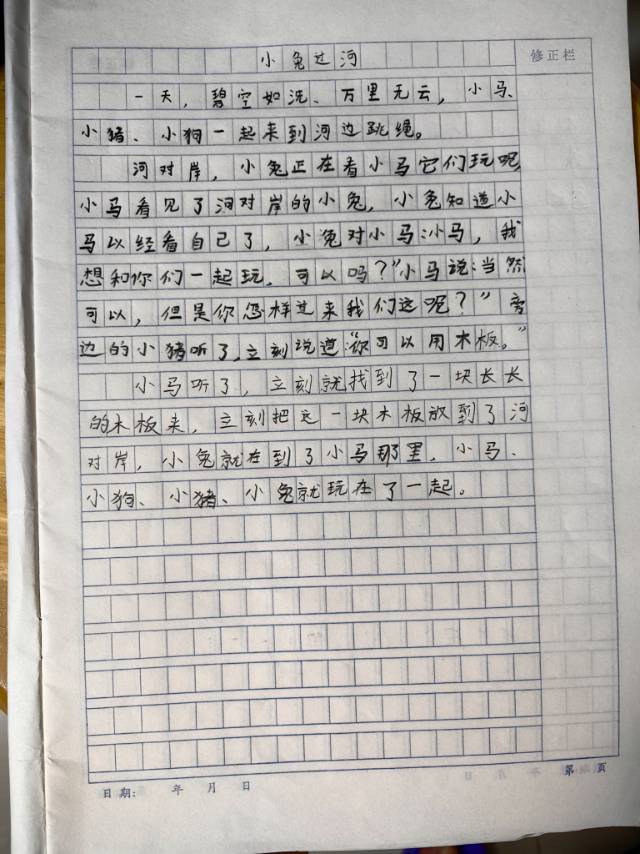 小兔过河
修正栏
一天，碧空如洗、万里无云，小马、
小猪、小狗一起来到河边跳绳。
河对岸，小兔正在看小马它们玩呢
小马看见了河对岸的小兔，小兔知道小
马以经看自己了，小兔对小马:小马，我
想和你们一起玩，可以吗？”小马说:当然
可以，但是你怎样过来我们这呢？”旁
边的小猪听了,立刻说道:“你可以用木板。”
小马听了，立刻就找到了一块长长
的木板来，立刻把这一块木板放到了河
对岸，小兔就在到了小马那里，小马、
小狗、小猪、小兔就玩在了一起。
日期： 年 月 日
第 页